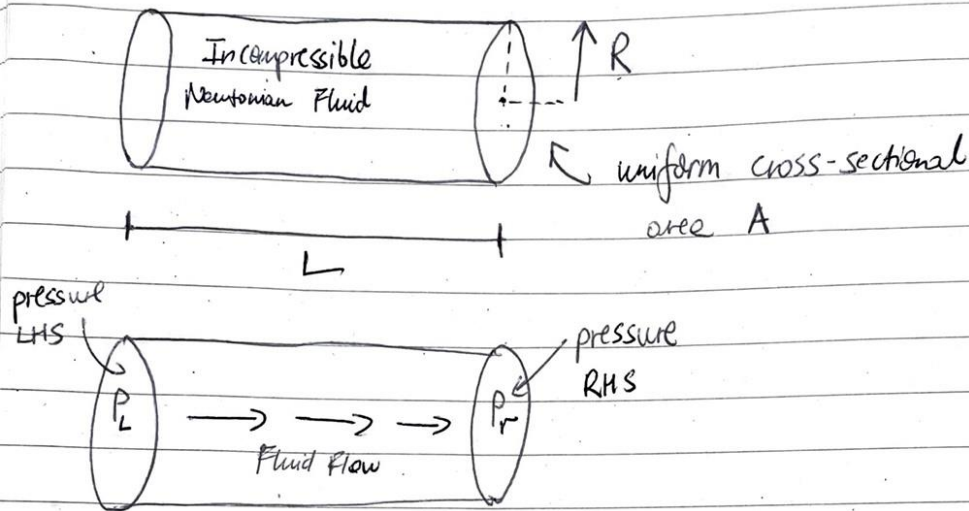 Incompressible
Newtonian Fluid
R
uniform cross-sectional
area A
L
pressure
LHS
pressure
RHS
P_L
P_r
Fluid Flow